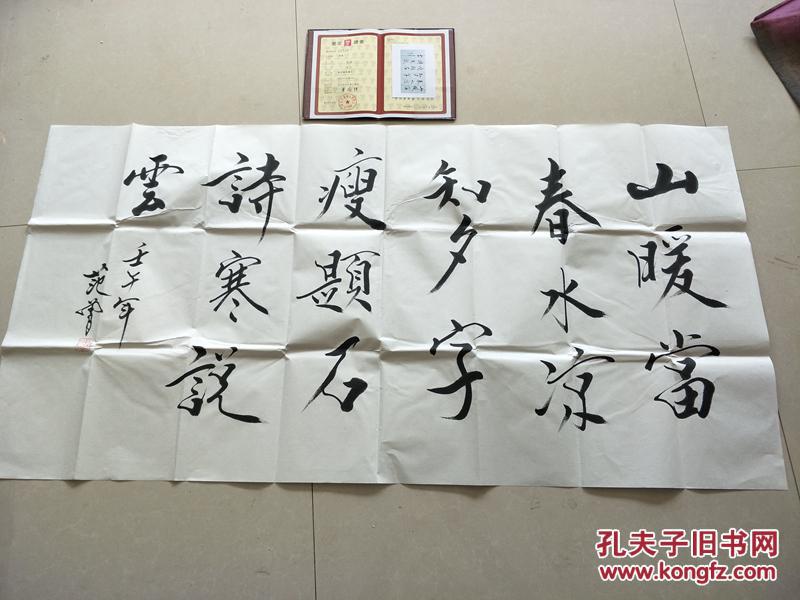 山暖當
春水凉
知夕字
瘦題石
詩寒説
雲
壬午年
范曾
孔夫子旧书网
www.kongfz.com